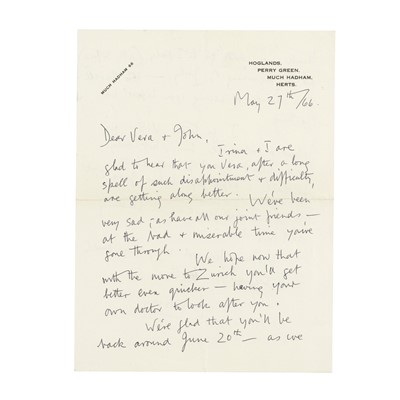 MUCH HADHAM 68
HOGLANDS,
PERRY GREEN,
MUCH HADHAM,
HERTS.
May 27th/66.
Dear Vera & John,
Irina & I are
glad to hear that you Vera, after a long
spell of such disappointment & difficulty,
are getting along better. We've been
very sad, – as have all our joint friends –
at the bad & miserable time you've
gone through. We hope now that
with the move to Zurich you'll get
better even quicker – having your
own doctor to look after you.
We're glad that you'll be
back around June 20th – as we